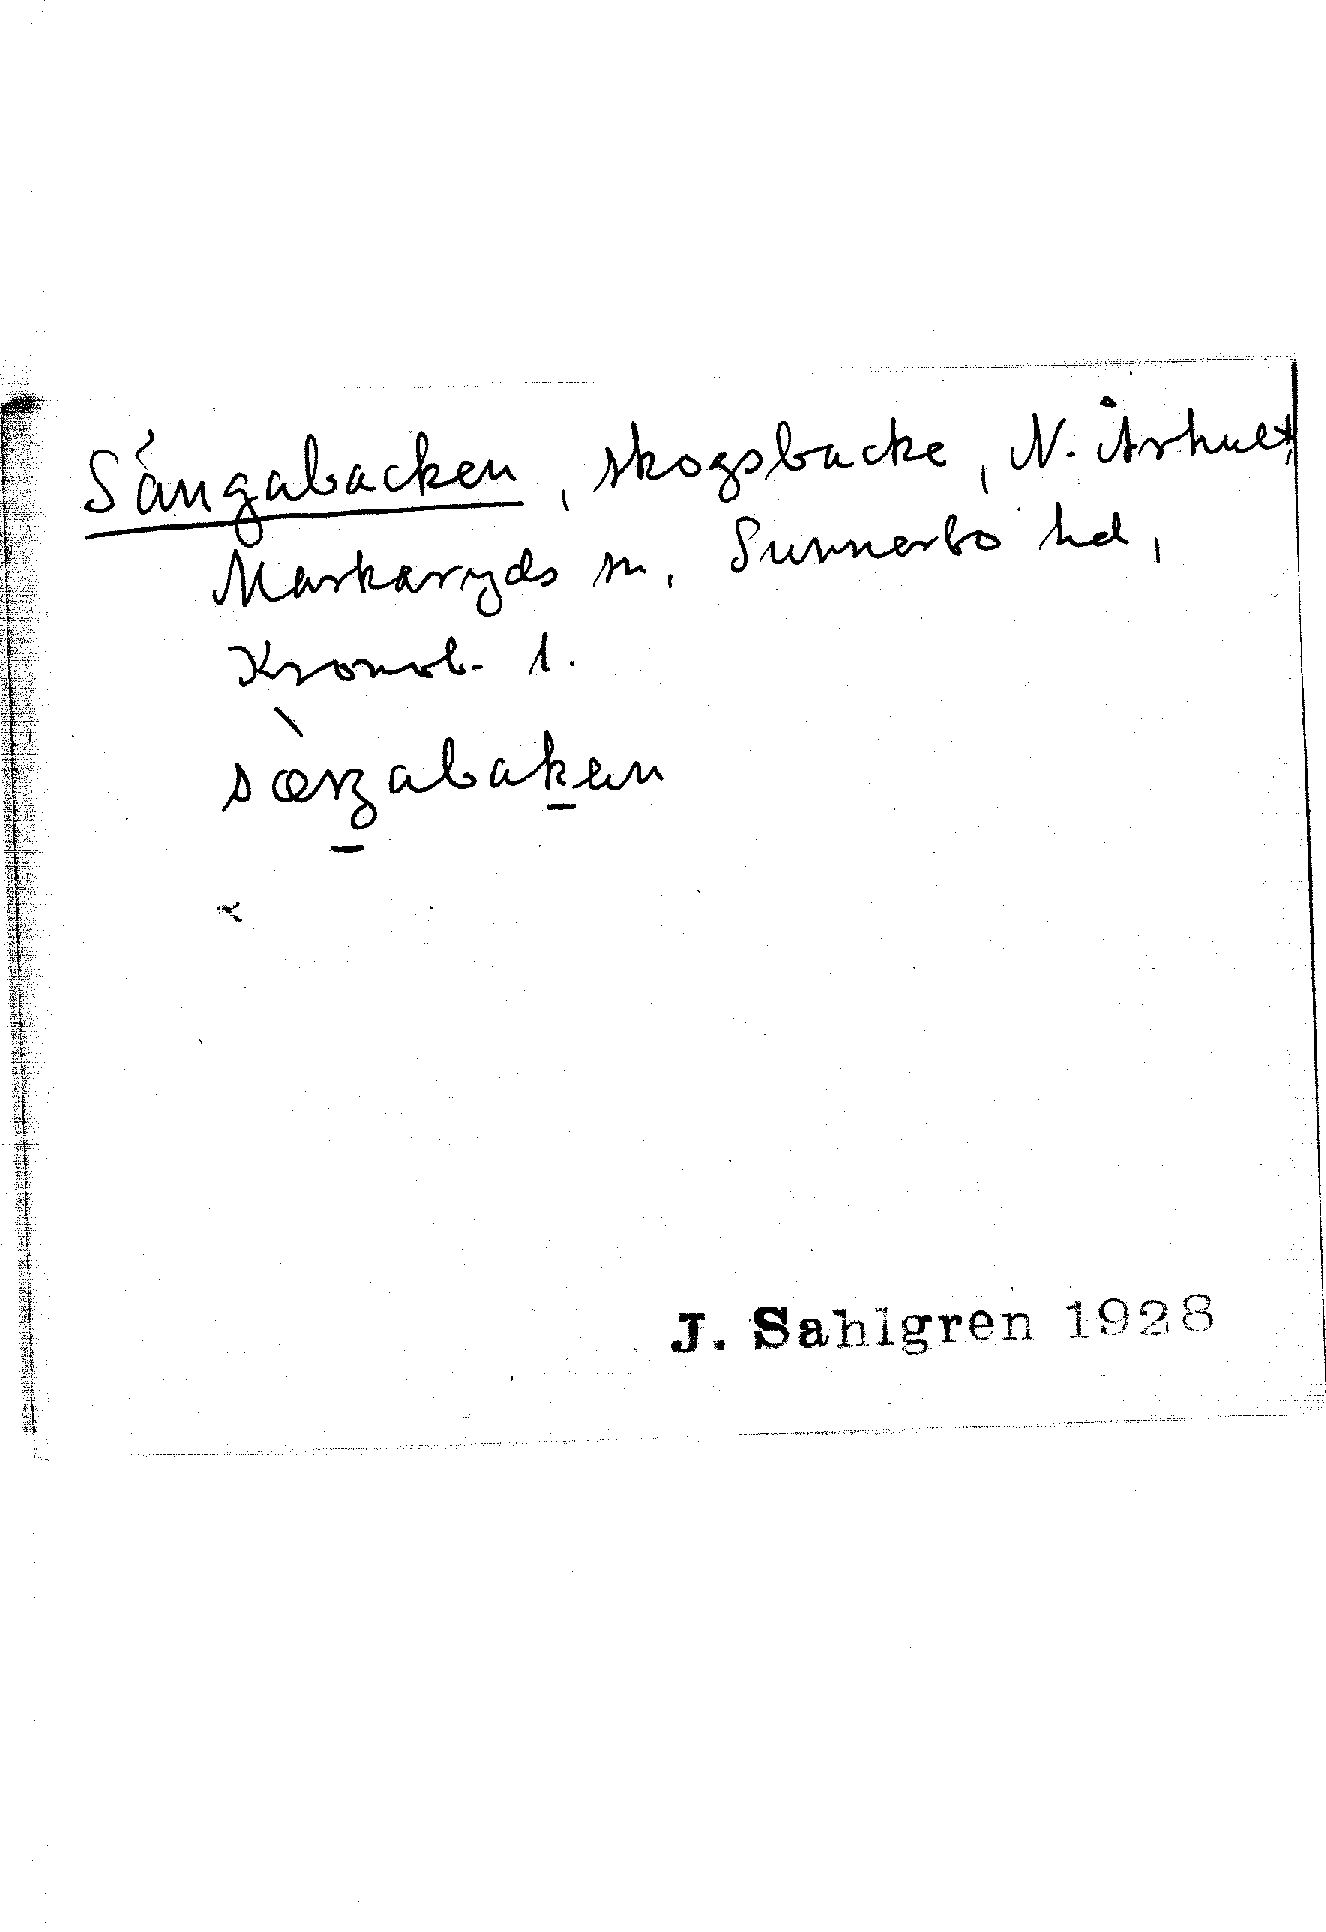 Sångabacken, skogsbacke, N. Århult,
Markaryds sn, Sunnerbo hd,
Kronob. l.
J. Sahlgren 1928